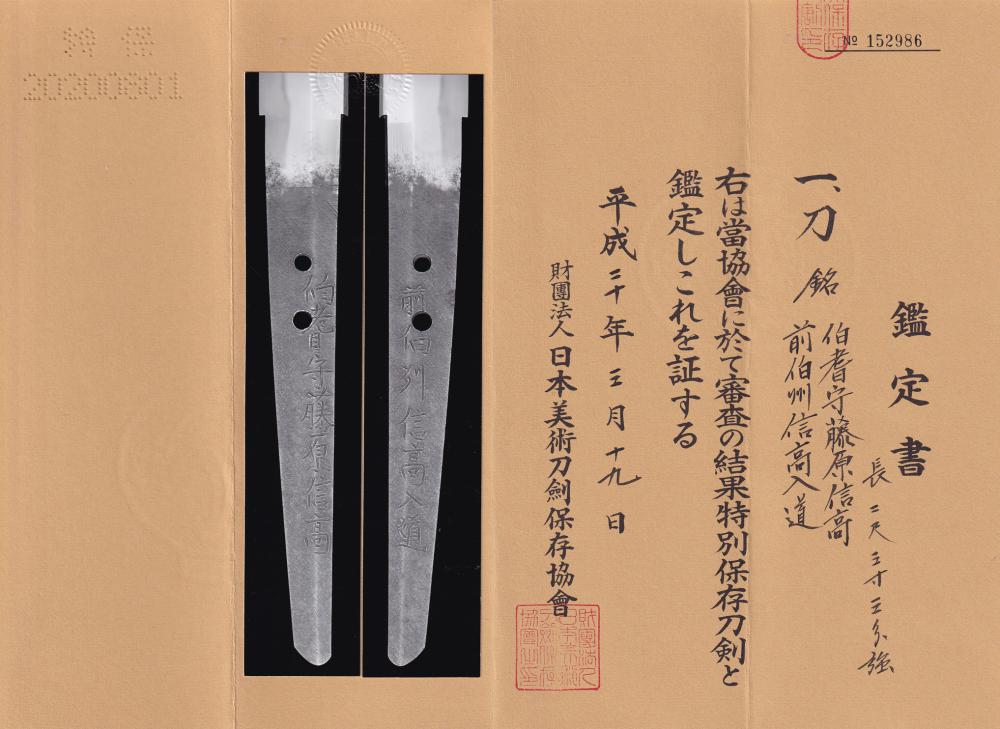 № 152986
鑑定書
長 二尺三寸三分強
一、刀 銘 伯耆守藤原信高
前伯州信高入道
右は當協會に於て審査の結果特別保存刀剣と
鑑定しこれを証する
平成二十年三月十九日
財團法人日本美術刀劍保存協會
前伯州信高入道
伯耆守藤原信高